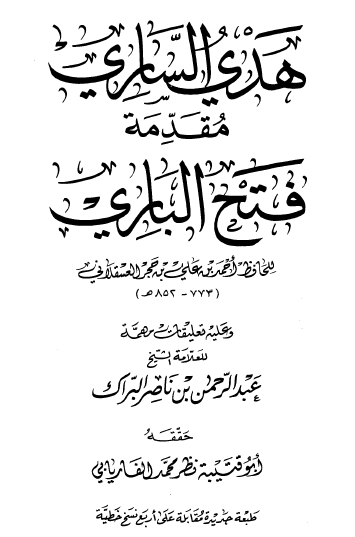 هَدْيُ السَّارِي
مُقَدِّمَة
فَتْحُ البَارِي
للحافظ أحمد بن علي بن حجر العسقلاني
(٧٧٣ - ٨٥٢ هـ)
وعليه تعليقات مهمّة
للعلامة الشيخ
عبد الرحمن بن ناصر البراك
حققه
أبو قتيبة نظر محمد الفاريابي
طبعة جديدة مقابلة على أربع نسخ خطية